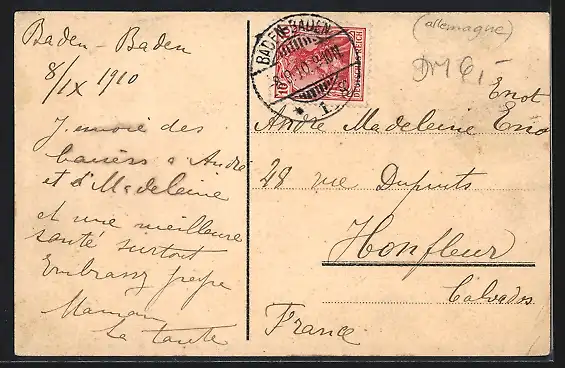 Baden-Baden
8/IX 1910
J'envoie des
baisers à André
et à Madeleine
et une meilleure
santé surtout
Embrassez pépé
Maman
La tante
BADEN-BADEN
8.9.10.
* 1.
10
DEUTSCHES REICH
(allemagne)
DM 6,-
Enot
André Madeleine Enot
28 rue Dupuits
Honfleur
Calvados
France